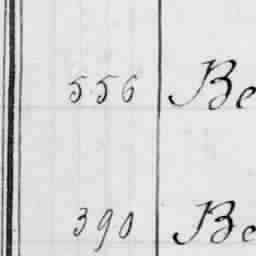 556 Be
390 Be